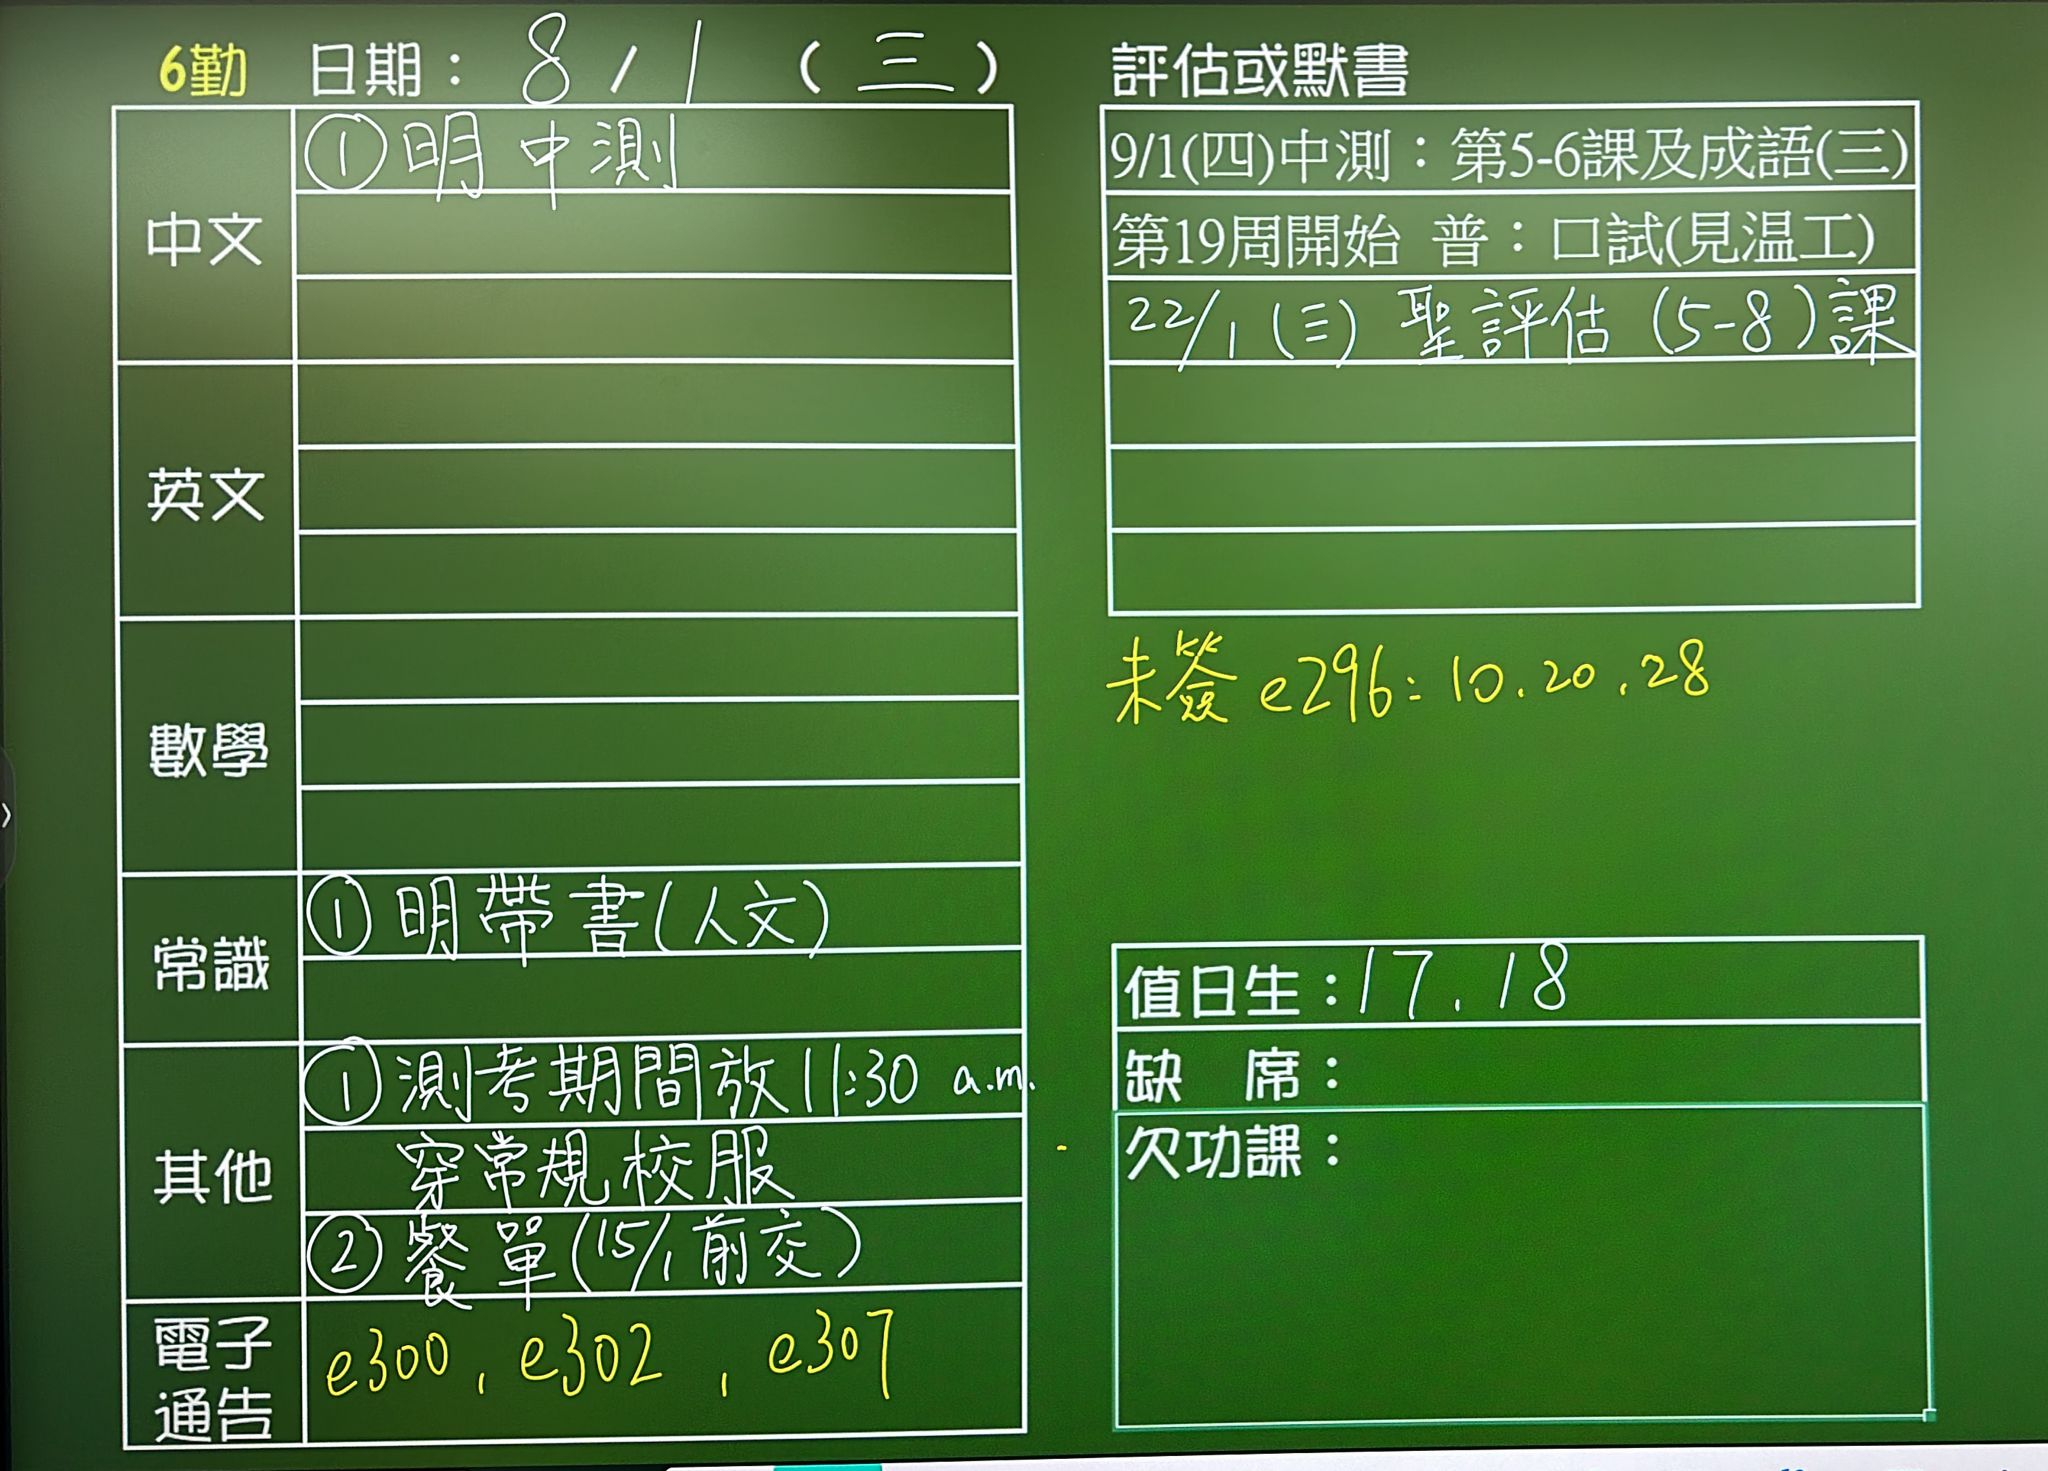 6勤 日期：8/1（三）
中文
①明中測
英文
數學
常識
①明帶書(人文)
其他
①測考期間放11:30 a.m.
穿常規校服
②餐單(15/1前交)
電子
通告
e300, e302, e307
評估或默書
9/1(四)中測：第5-6課及成語(三)
第19周開始 普：口試(見温工)
22/1(三) 聖評估(5-8)課
未簽e296: 10.20.28
值日生：17.18
缺 席：
欠功課：